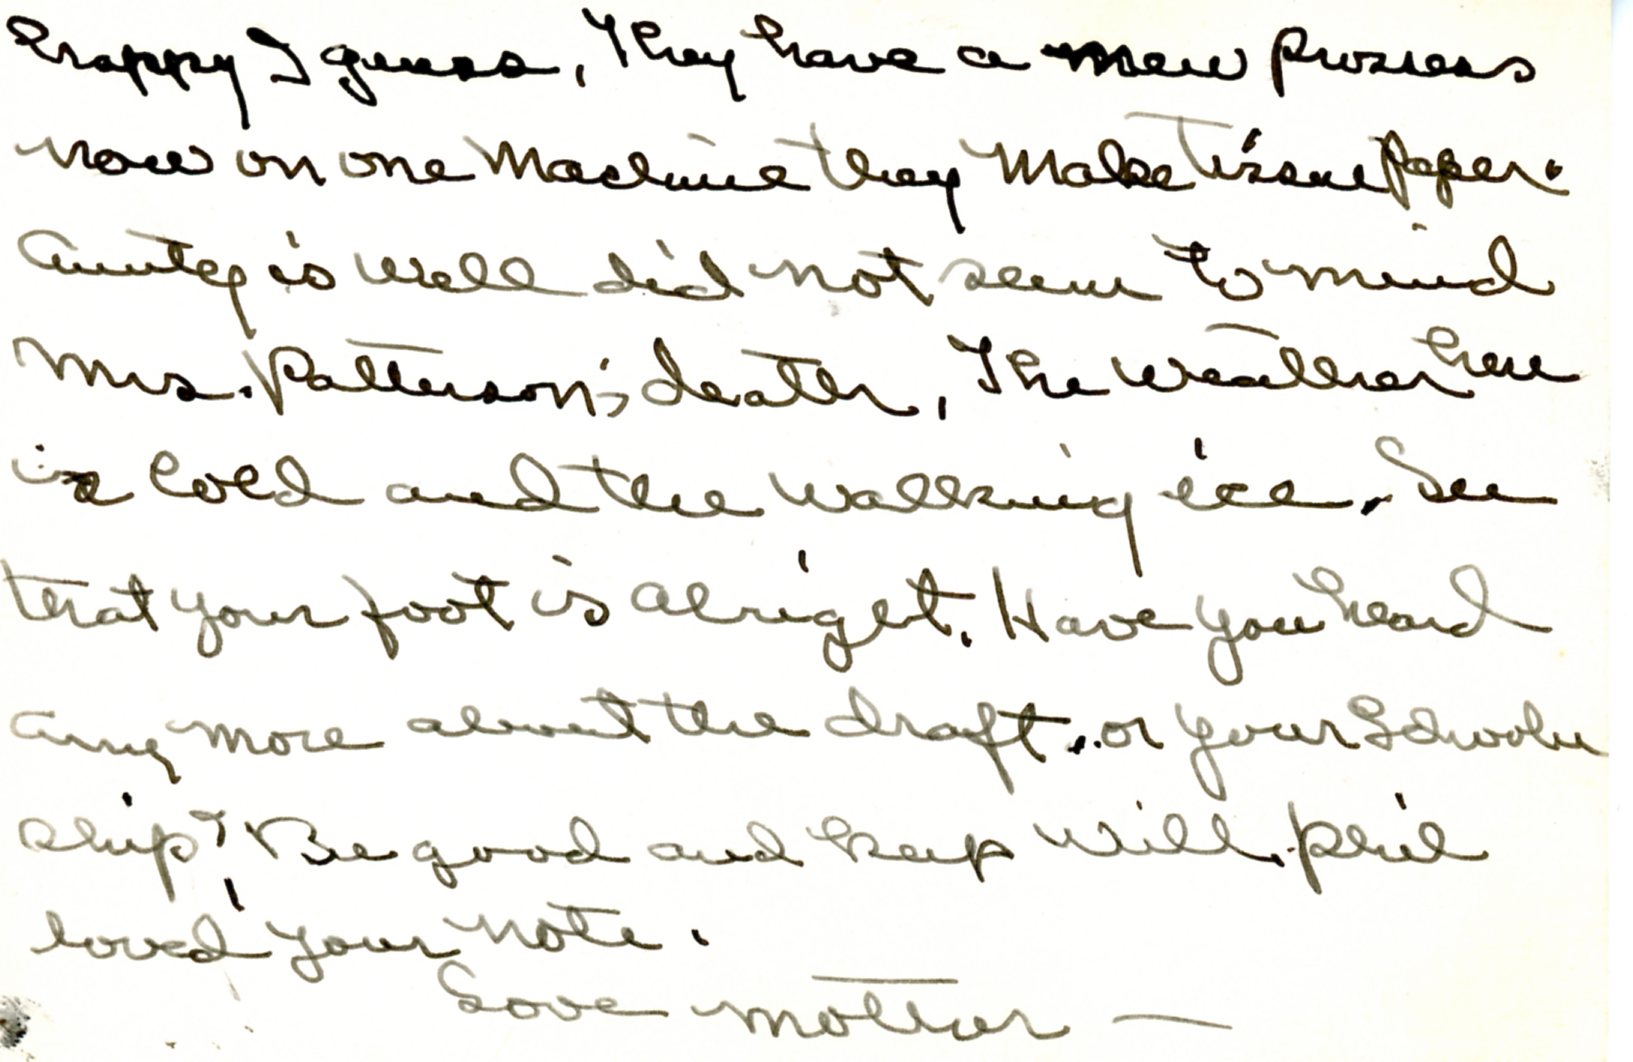 happy I guess, They have a new prosess
now on one Machine they Make Tissue Paper.
Auntey is well did not seem to mind
Mrs. Patterson's death, The weather here
is Cold and the walking ice. See
that your foot is alright. Have you heard
any more about the draft.. or your Scholar
ship? Be good and keep will. Phil
loved your note.
Love Mother —